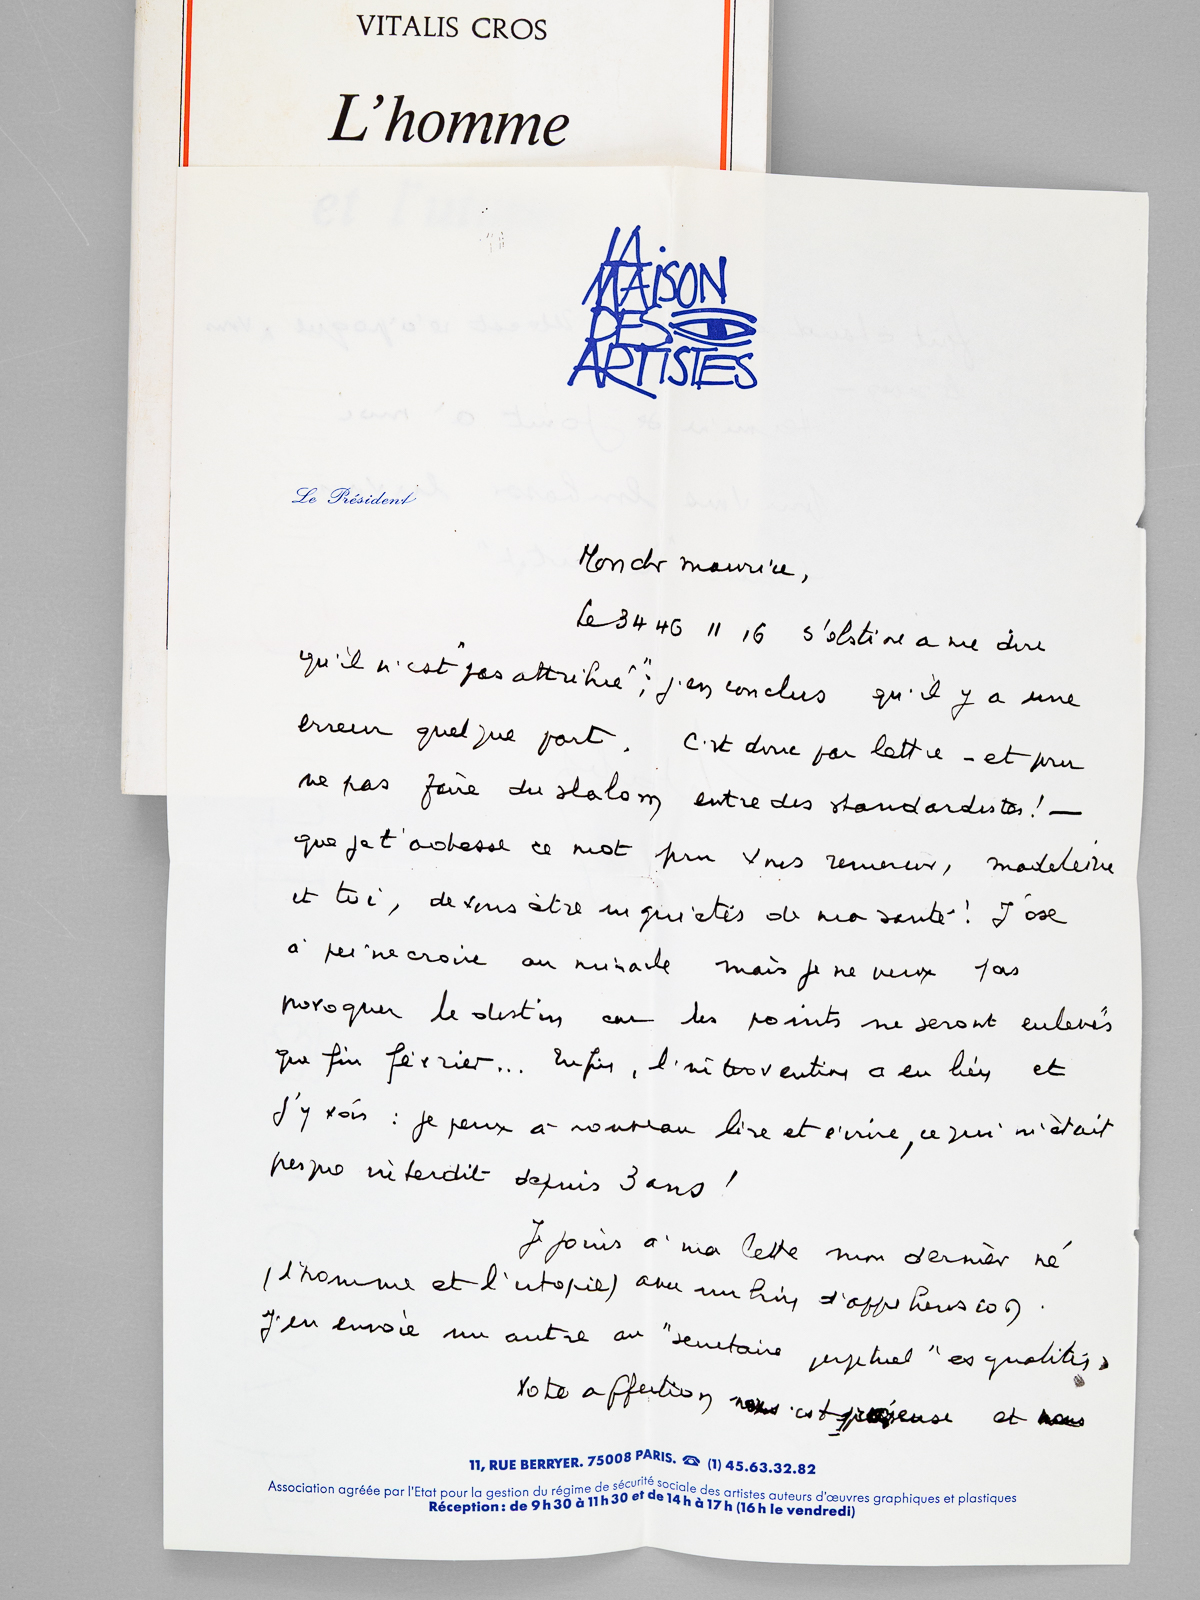 VITALIS CROS
L'homme
LA
MAISON
DES
ARTISTES
Le Président
Mon chr Maurice,
Le 34 46 11 16 s'obstine a me dire
qu'il n'est "pas attribué"; j'en conclus qu'il y a une
erreur quelque part. C'est donc par lettre - et pour
ne pas faire du slalom entre des standardistes! —
que je t'adresse ce mot pour vous remercier, Madeleine
et toi, de vous être inquiétés de ma santé! J'ose
à peine croire au miracle mais je ne veux pas
provoquer le destin car les points ne seront enlevés
que fin février... Enfin, l'intervention a eu lieu et
j'y vois : je peux à nouveau lire et écrire, ce qui m'était
presque interdit depuis 3 ans!
Je joins à ma lettre mon dernier né
(l'homme et l'utopie) avec un brin d'appréhension.
J'en envoie un autre au "secrétaire perpétuel" es qualités,
Votre affection est précieuse et
11, RUE BERRYER. 75008 PARIS. ☎ (1) 45.63.32.82
Association agréée par l'Etat pour la gestion du régime de sécurité sociale des artistes auteurs d'œuvres graphiques et plastiques
Réception : de 9 h 30 à 11 h 30 et de 14 h à 17 h (16 h le vendredi)